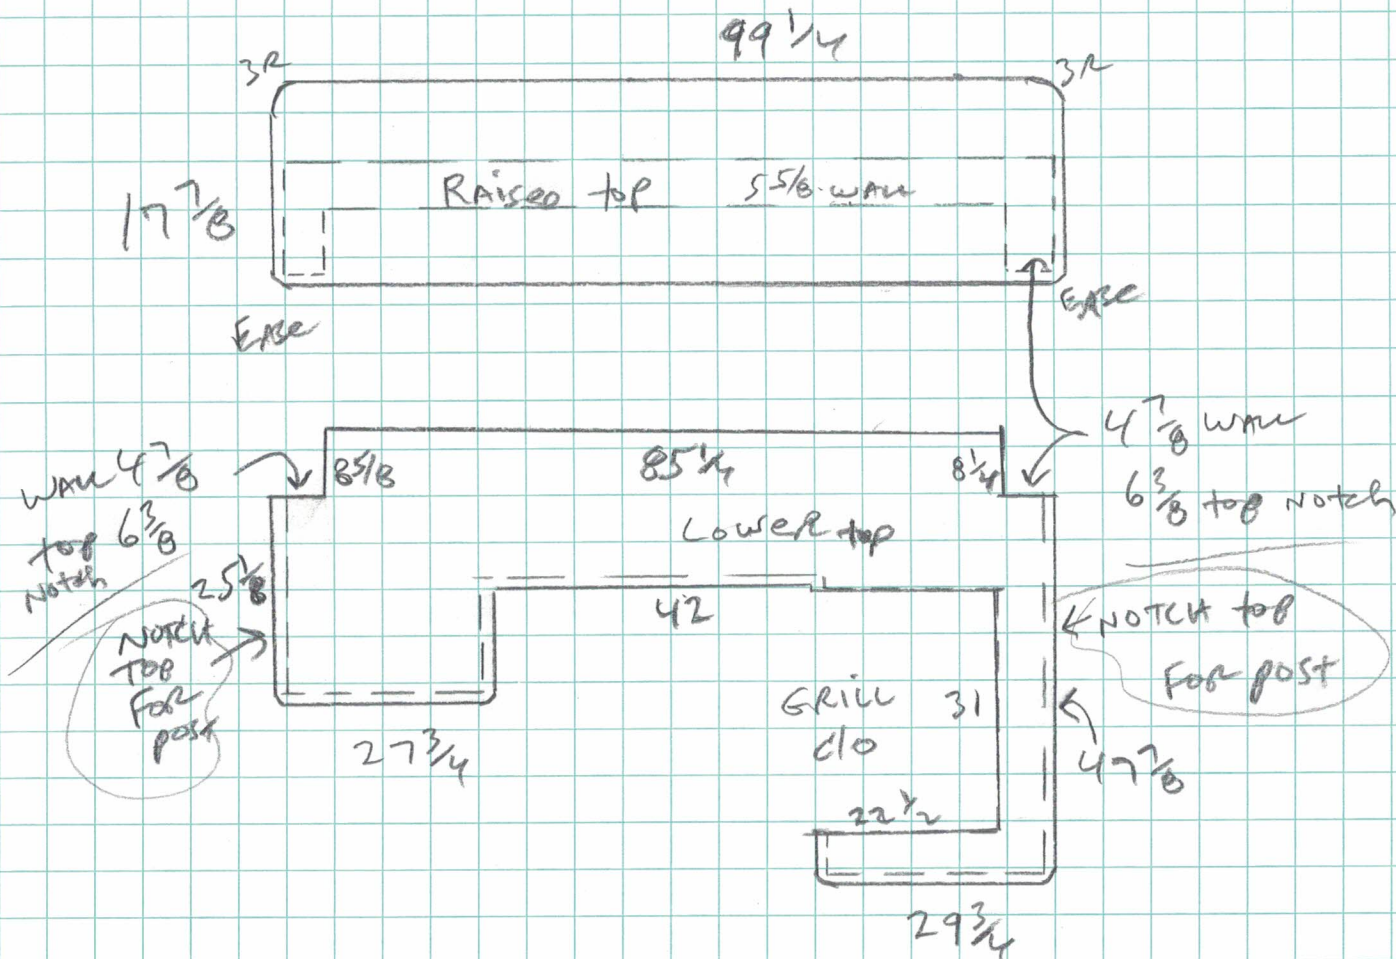 99 1/4
3R
3R
17 7/8
Raised top 5 5/8 wall
Ease
Ease
4 7/8 wall
6 3/8 top Notch
wall 4 7/8
top 6 3/8
Notch
8 5/8
85 1/4
8 1/4
Lower top
25 1/8
42
NOTCH
TOP
FOR
post
NOTCH top
FOR post
GRILL
c/o
31
27 3/4
47 7/8
22 1/2
29 3/4